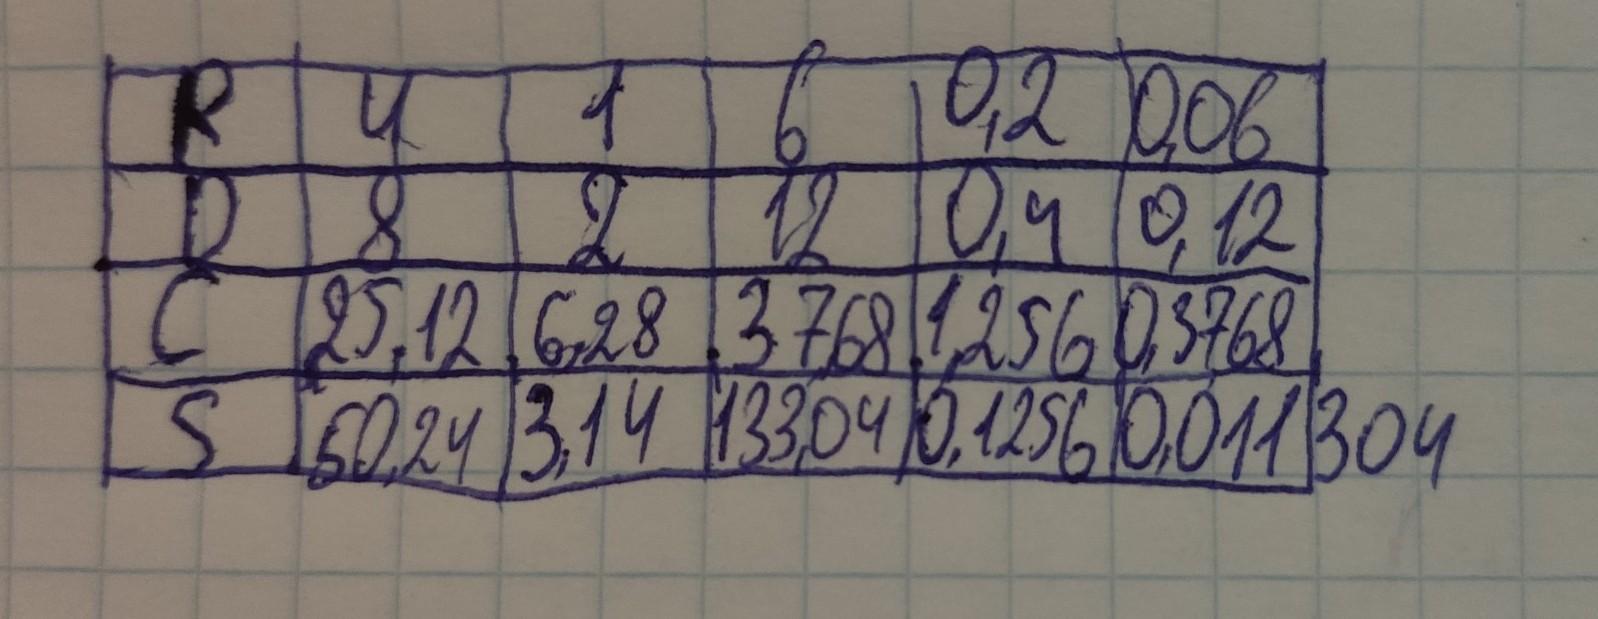 R 4 1 6 0,2 0,06
D 8 2 12 0,4 0,12
C 25,12 6,28 37,68 1,256 0,3768
S 50,24 3,14 133,04 0,1256 0,011304